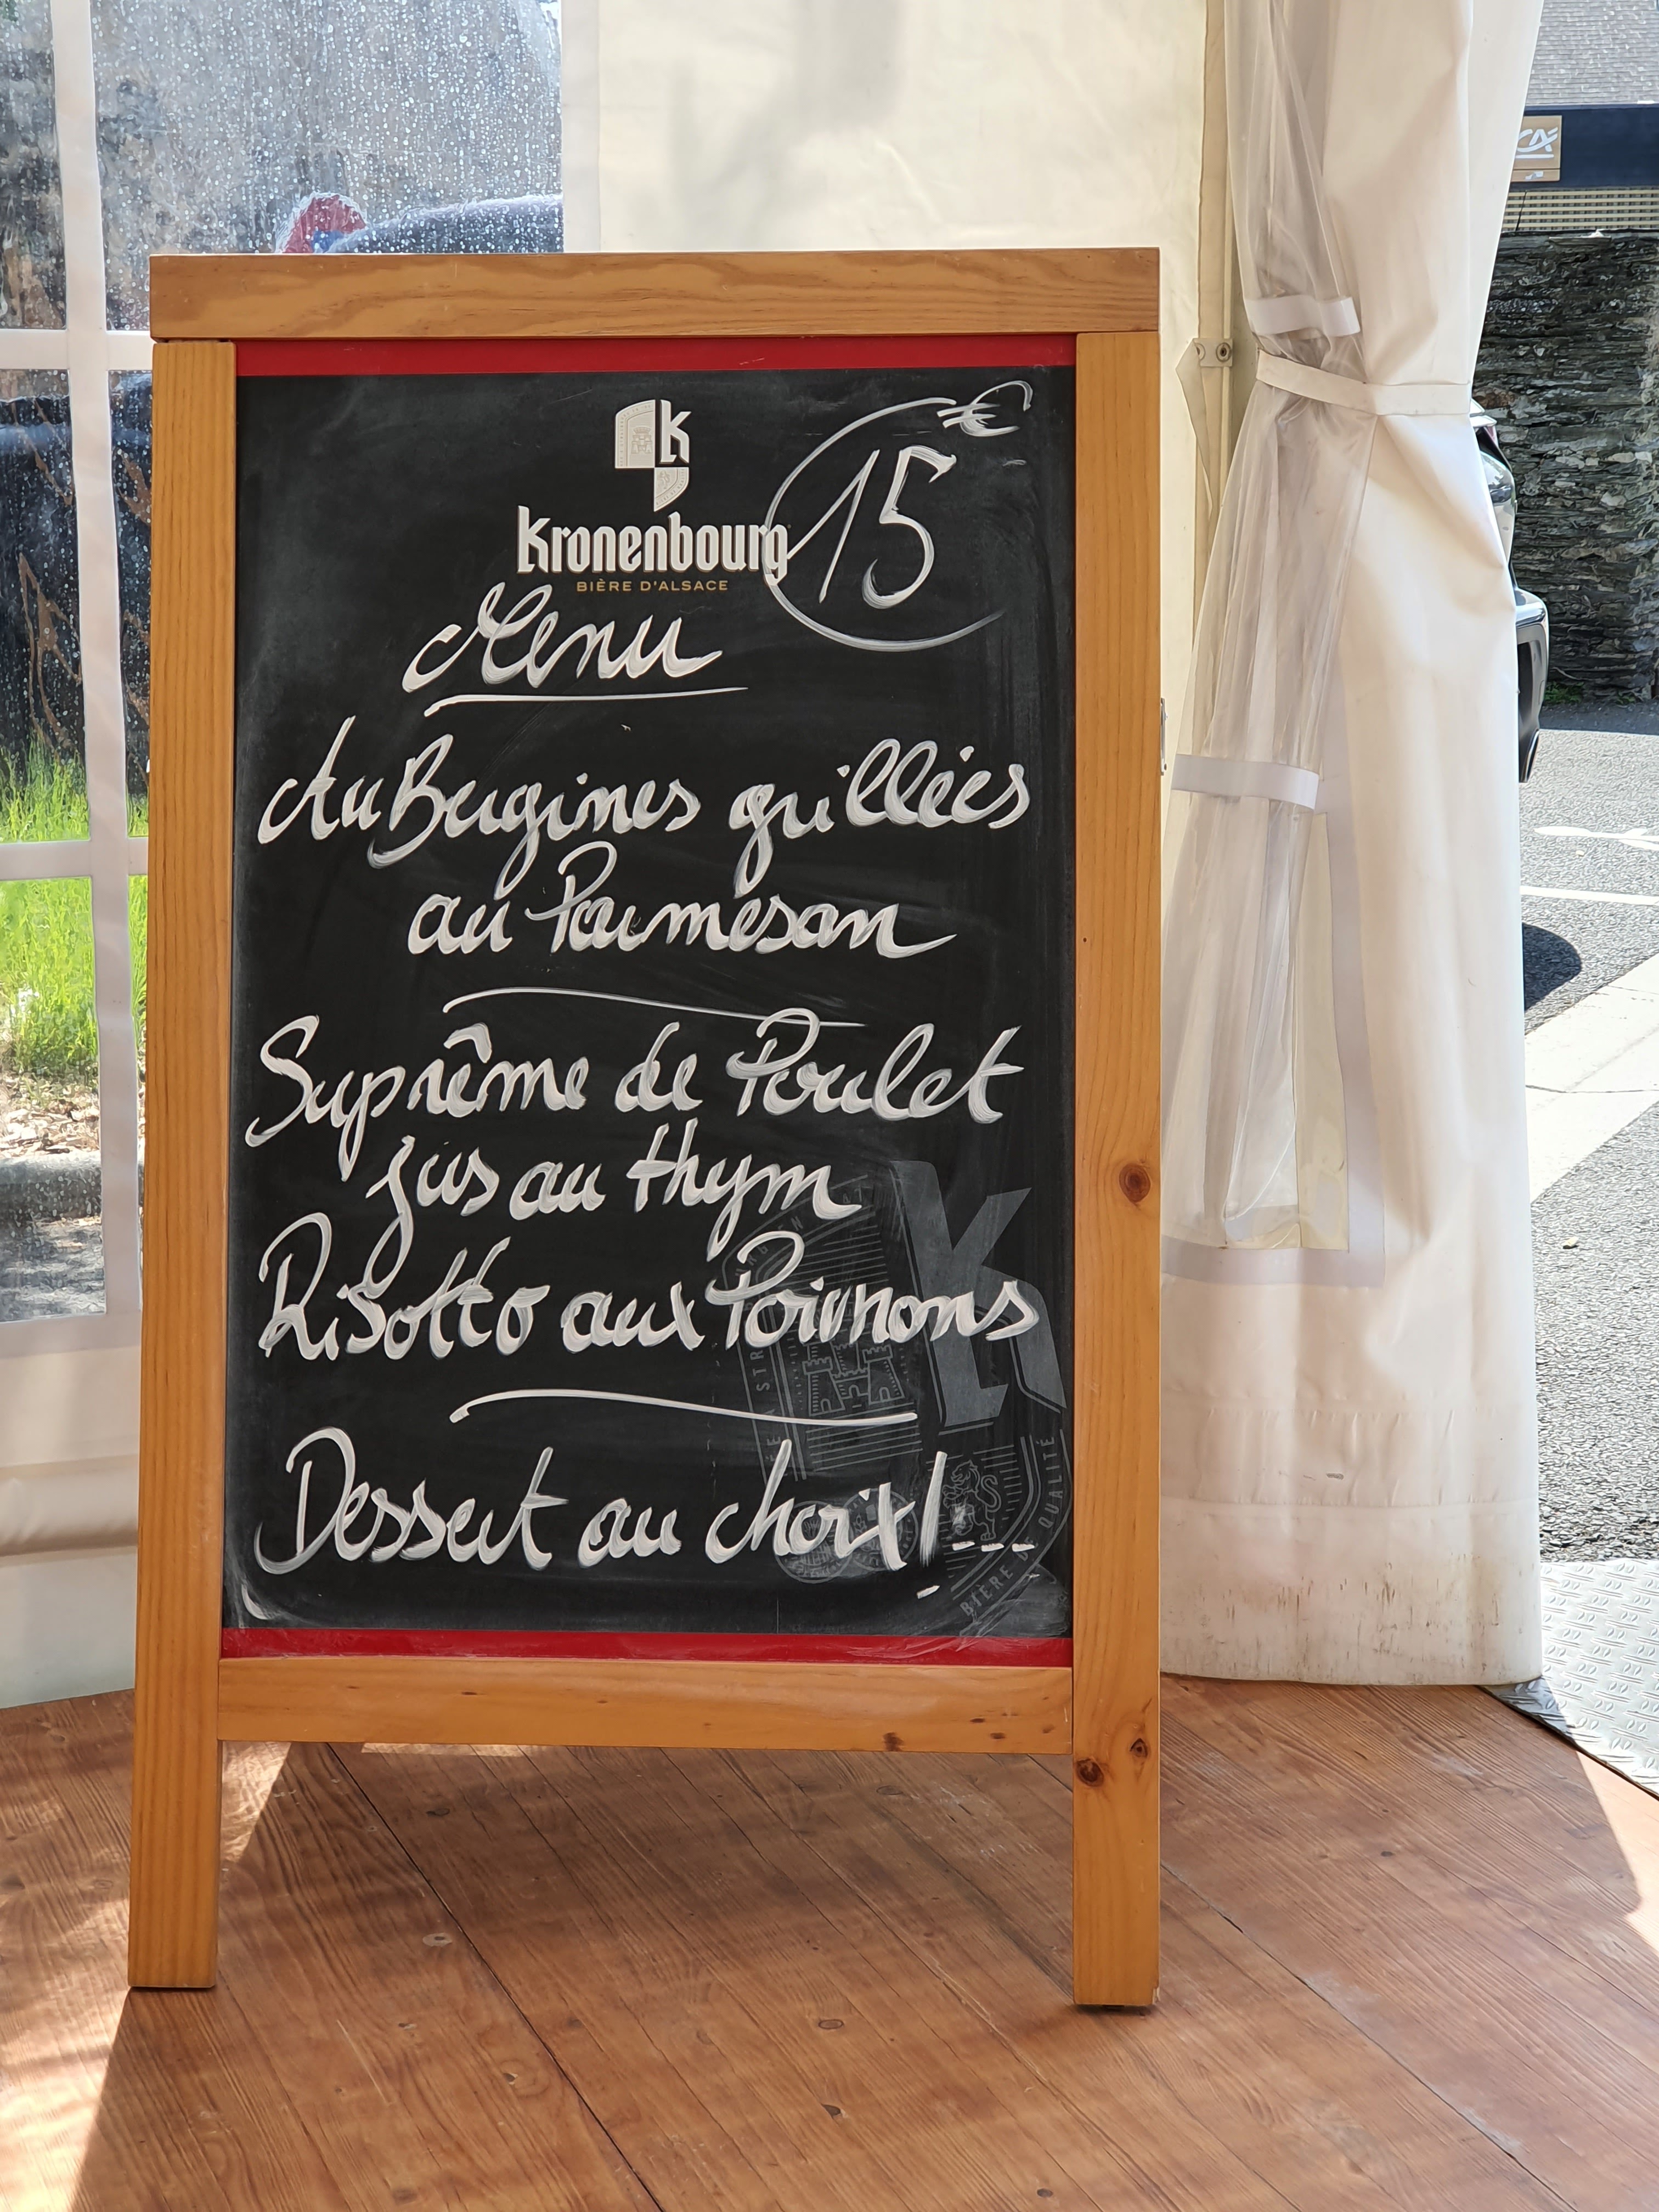 K
Kronenbourg
BIÈRE D'ALSACE
15€
Menu
AuBergines grillées
au Parmesan
Suprême de Poulet
jus au thym
Risotto aux Poivrons
Dessert au choix!---
BIÈRE DE QUALITÉ
CA